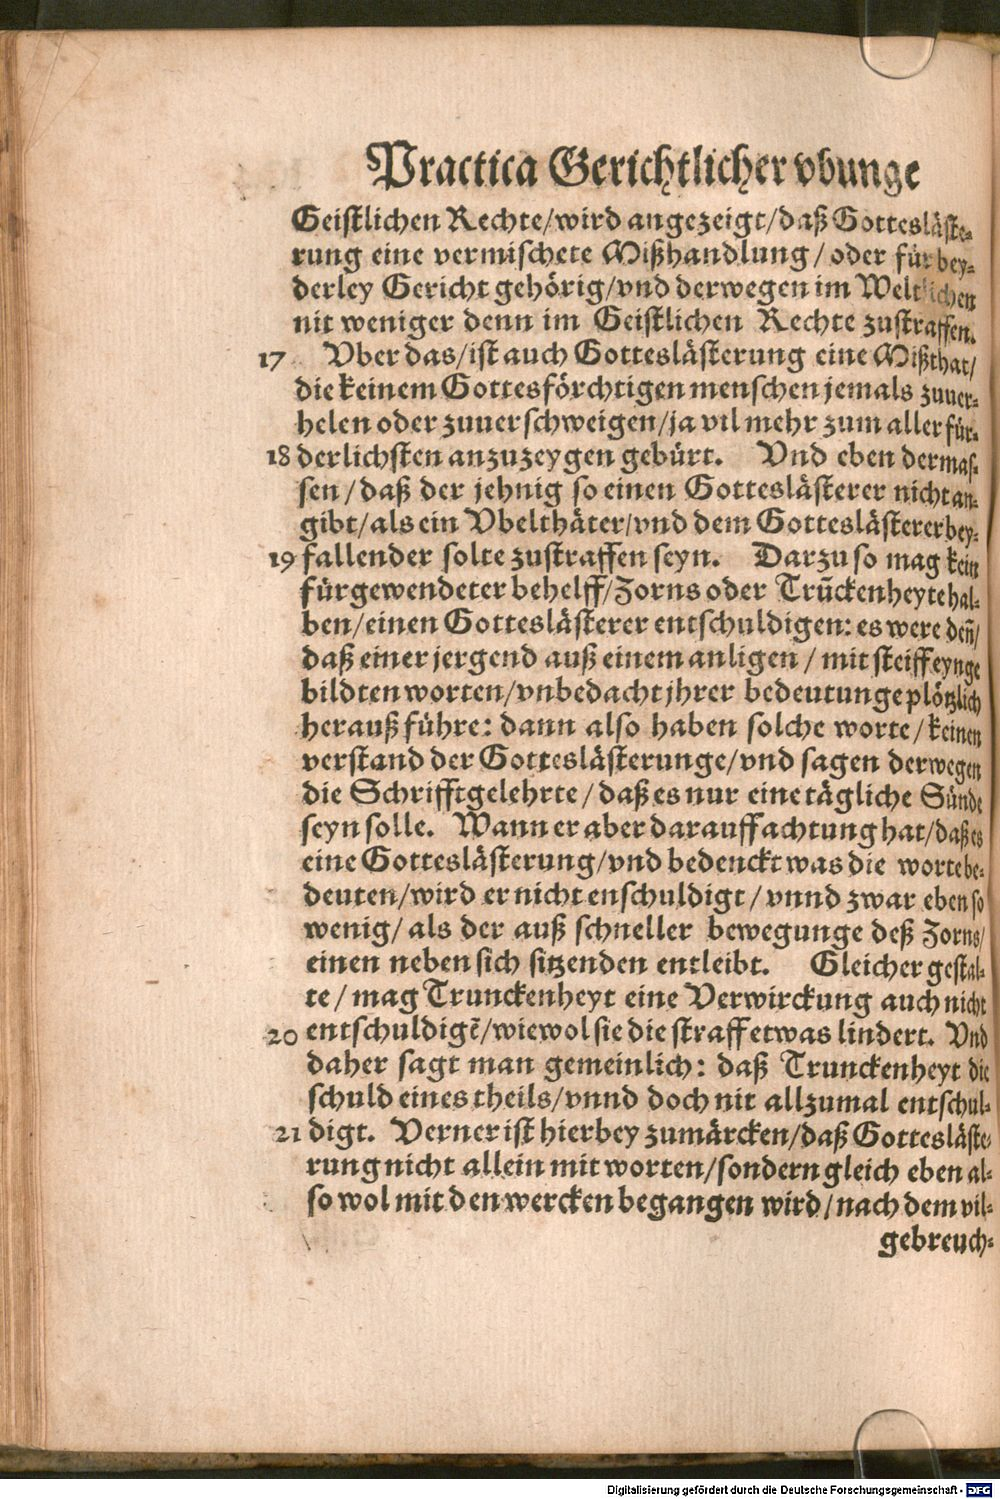 Practica Gerichtlicher vbunge
Geistlichen Rechte/wird angezeigt/daß Gottesläste-
rung eine vermischete Mißhandlung/ oder für bey-
derley Gericht gehörig/vnd derwegen im Weltlichen
nit weniger denn im Geistlichen Rechte zustraffen.
17 Vber das/ist auch Gotteslästerung eine Mißthat/
die keinem Gottesförchtigen menschen jemals zuuer-
helen oder zuuerschweigen/ja vil mehr zum aller für-
18 derlichsten anzuzeygen gebürt. Vnd eben dermas-
sen/daß der jehnig so einen Gotteslästerer nicht an-
gibt/als ein Vbelthäter/vnd dem Gotteslästerer bey-
19 fallender solte zustraffen seyn. Darzu so mag kein
fürgewendeter behelff/Zorns oder Trũckenheyte hal-
ben/einen Gotteslästerer entschuldigen: es were deñ/
daß einer jergend auß einem anligen/ mit steiff eynge
bildten worten/vnbedacht jhrer bedeutunge plötzlich
herauß führe: dann also haben solche worte/ keinen
verstand der Gotteslästerunge/vnd sagen derwegen
die Schrifftgelehrte/ daß es nur eine tägliche Sünde
seyn solle. Wann er aber darauff achtung hat/daß es
eine Gotteslästerung/vnd bedenckt was die worte be-
deuten/wird er nicht enschuldigt/ vnnd zwar eben so
wenig/ als der auß schneller bewegunge deß Zorns/
einen neben sich sitzenden entleibt. Gleicher gestal-
te/ mag Trunckenheyt eine Verwirckung auch nicht
20 entschuldigẽ/wiewol sie die straff etwas lindert. Vnd
daher sagt man gemeinlich: daß Trunckenheyt die
schuld eines theils/vnnd doch nit allzumal entschul-
21 digt. Verner ist hierbey zumärcken/daß Gottesläste-
rung nicht allein mit worten/sondern gleich eben al-
so wol mit den wercken begangen wird/nach dem vil-
gebreuch-
Digitalisierung gefördert durch die Deutsche Forschungsgemeinschaft - DFG